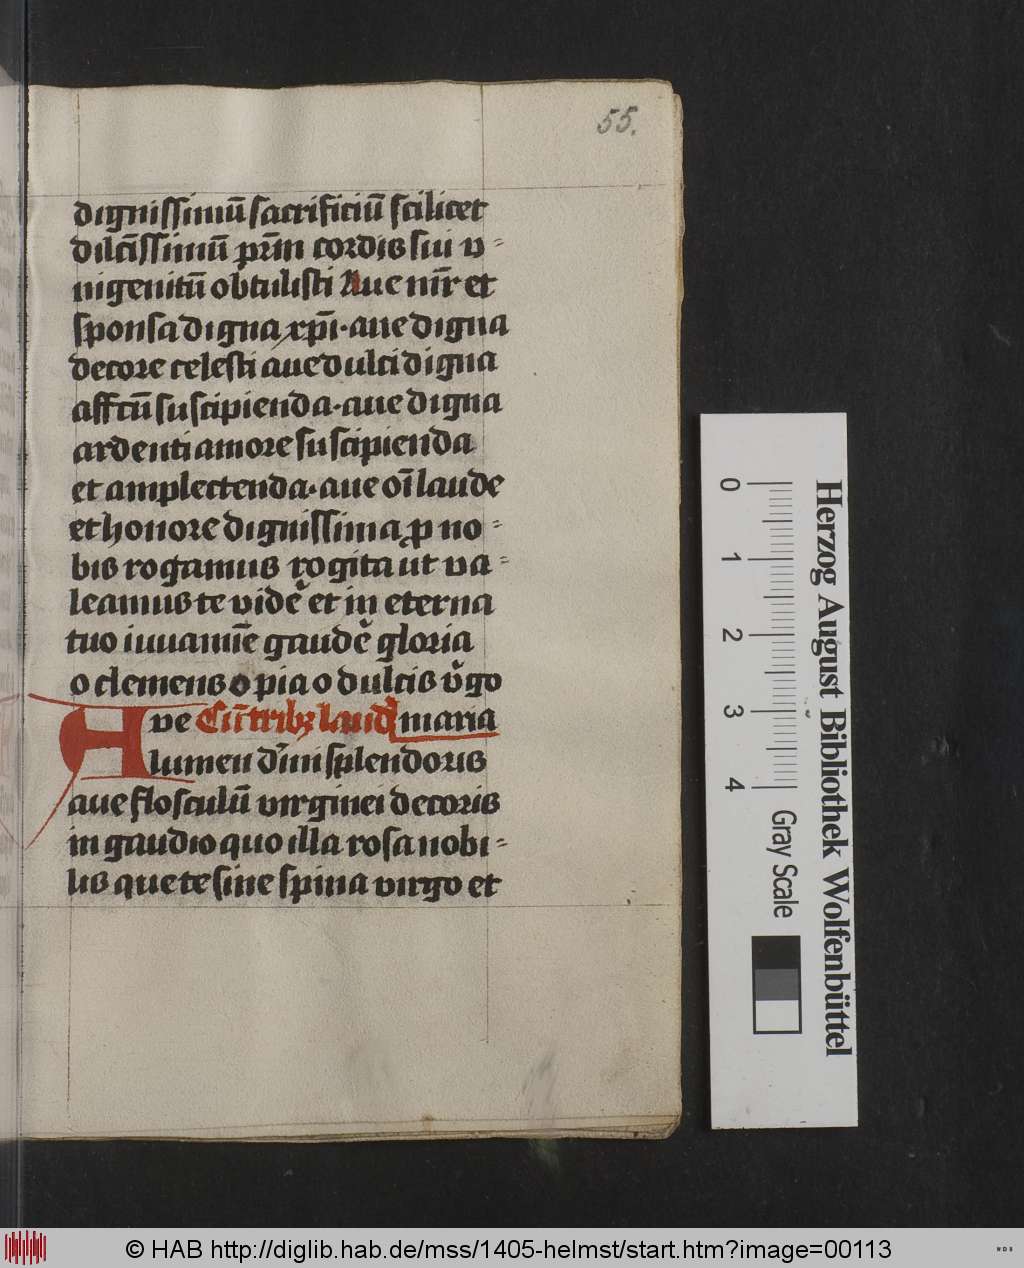 55.
dignissimū sacrificiū scilicet
dilcīssimū pr̄m cordis sui v⸗
nigenitū obtulisti Aue mr̄ et
sponsa digna xp̄i · aue digna
decore celesti aue dulci digna
affc̄u suscipienda · aue digna
ardenti amore suscipienda
et amplectenda · aue oī laude
et honore dignissima ꝓ no⸗
bis rogamus rogita ut va⸗
leamus te videꝰ et in eterna
tuo iuuamīe gaudeꝰ gloria
o clemens o pia o dulcis v̓go
Aue Cū tribꝫ laud maria
lumen d̓ini splendoris
aue flosculū virginei decoris
in gaudio quo illa rosa nobi⸗
lis que te sine spina virgo et
0 1 2 3 4
Gray Scale
Herzog August Bibliothek Wolfenbüttel
© HAB http://diglib.hab.de/mss/1405-helmst/start.htm?image=00113